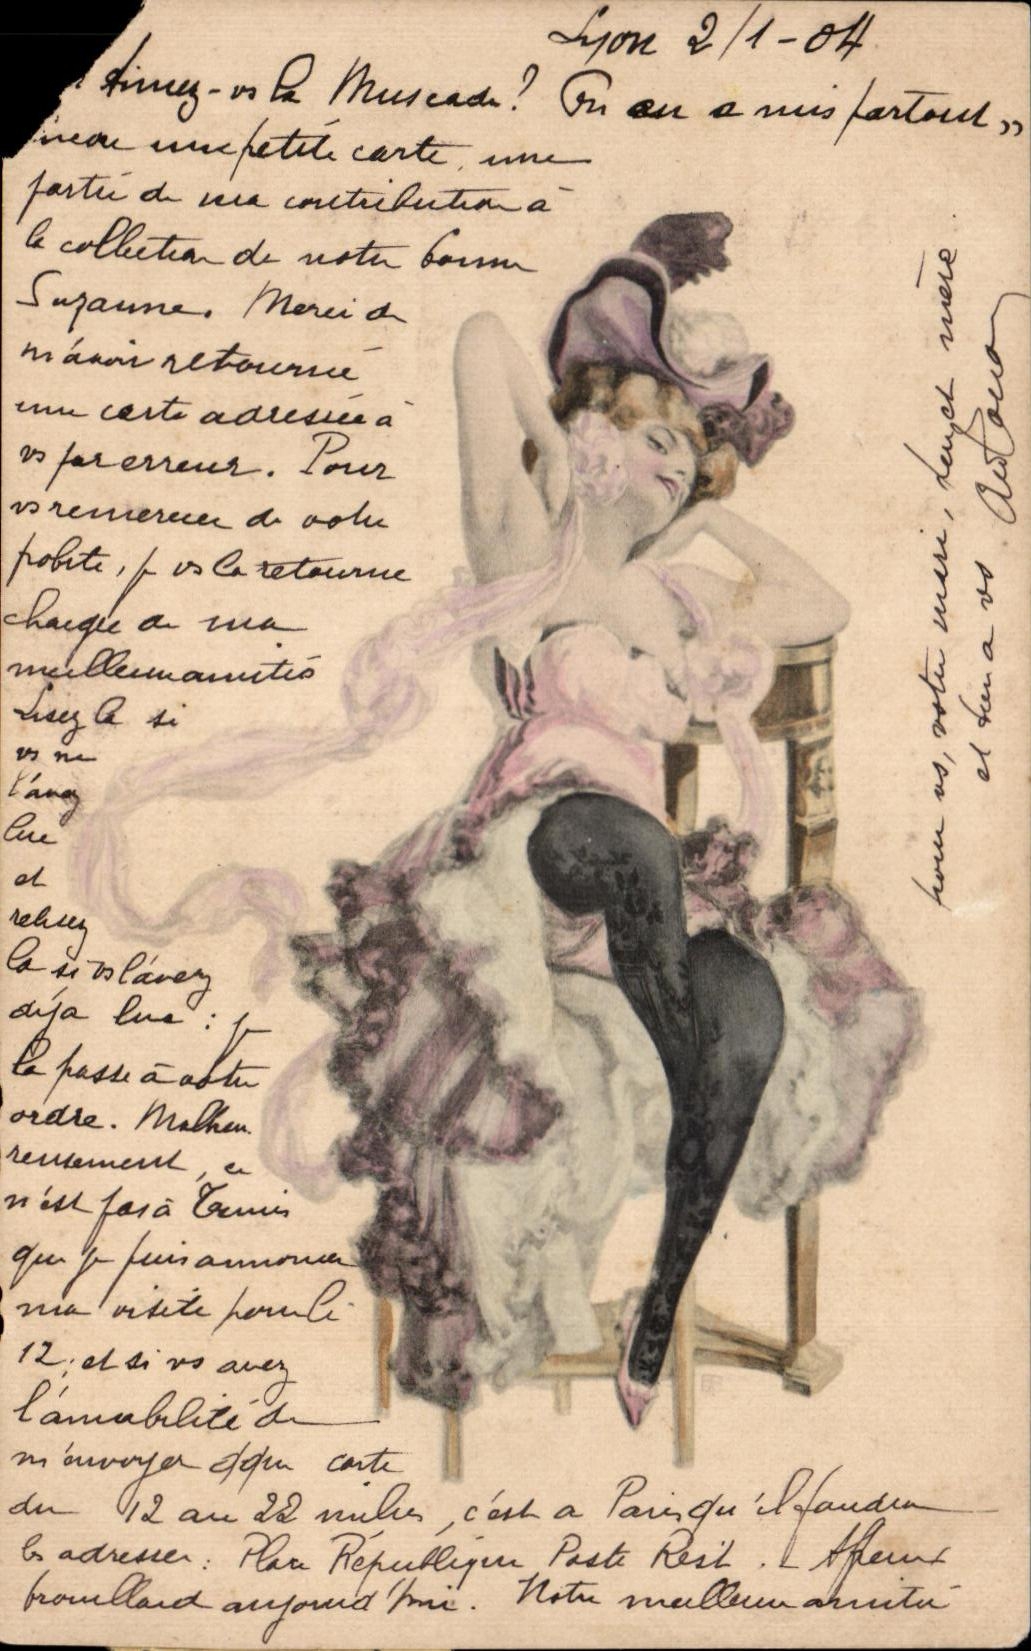 Lyon 2/1-04
Aimez-vs la Muscade? On en a mis partout »
une petite carte, une
partie de ma contribution à
la collection de votre bonne
Suzanne. Merci de
m'avoir retourné
une carte adressée à
vs par erreur. Pour
vs remercier de votre
probité, je vs la retourne
chargée de ma
meilleure amitié
Lisez la si
vs ne
l'avez
lue
et
relisez
la si vs l'avez
déja lue : je
la passe à votre
ordre. Malheu
reusement, ce
n'est pas à Tunis
que je puis annoncer
ma visite pour le
12; et si vs avez
l'amabilité de
m'envoyer qque carte
du 12 au 22 c'est a Paris qu'il faudra
les adresser: Place République Poste Rest. - Affreux
brouillard aujourd'hui. Notre meilleure amitié
pour vs, votre mari, mère
et bien a vs